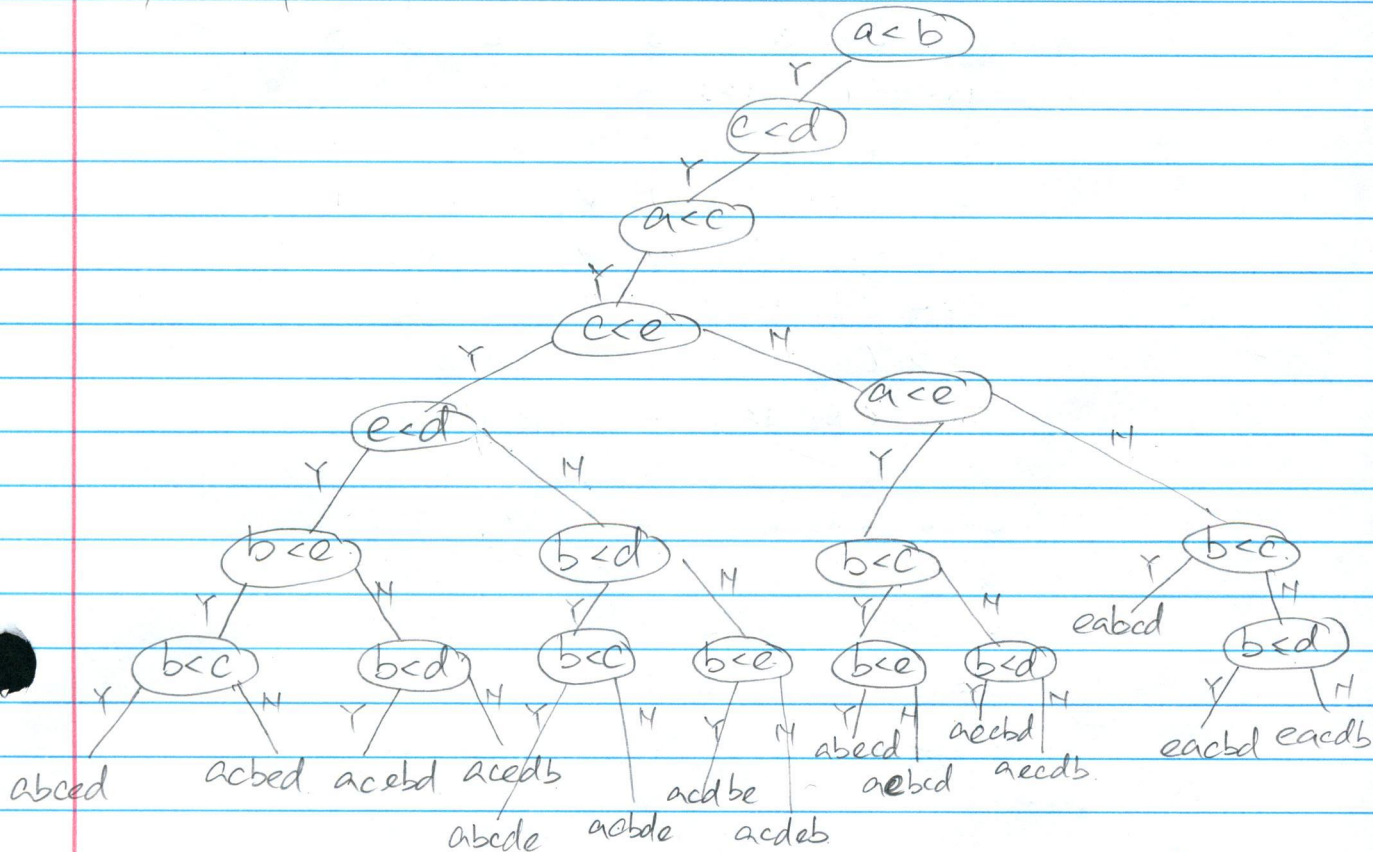 a<b
Y
c<d
Y
a<c
Y
c<e
Y N
e<d a<e
Y N Y N
b<e b<d b<c b<c
Y N Y N Y N Y N
eabcd
b<c b<d b<c b<e b<e b<d b<d
Y N Y N Y N Y N Y N Y N Y N
abecd aecbd eacbd eacdb
abced acbed acebd acedb acdbe aebcd aecdb
abcde acbde acdeb